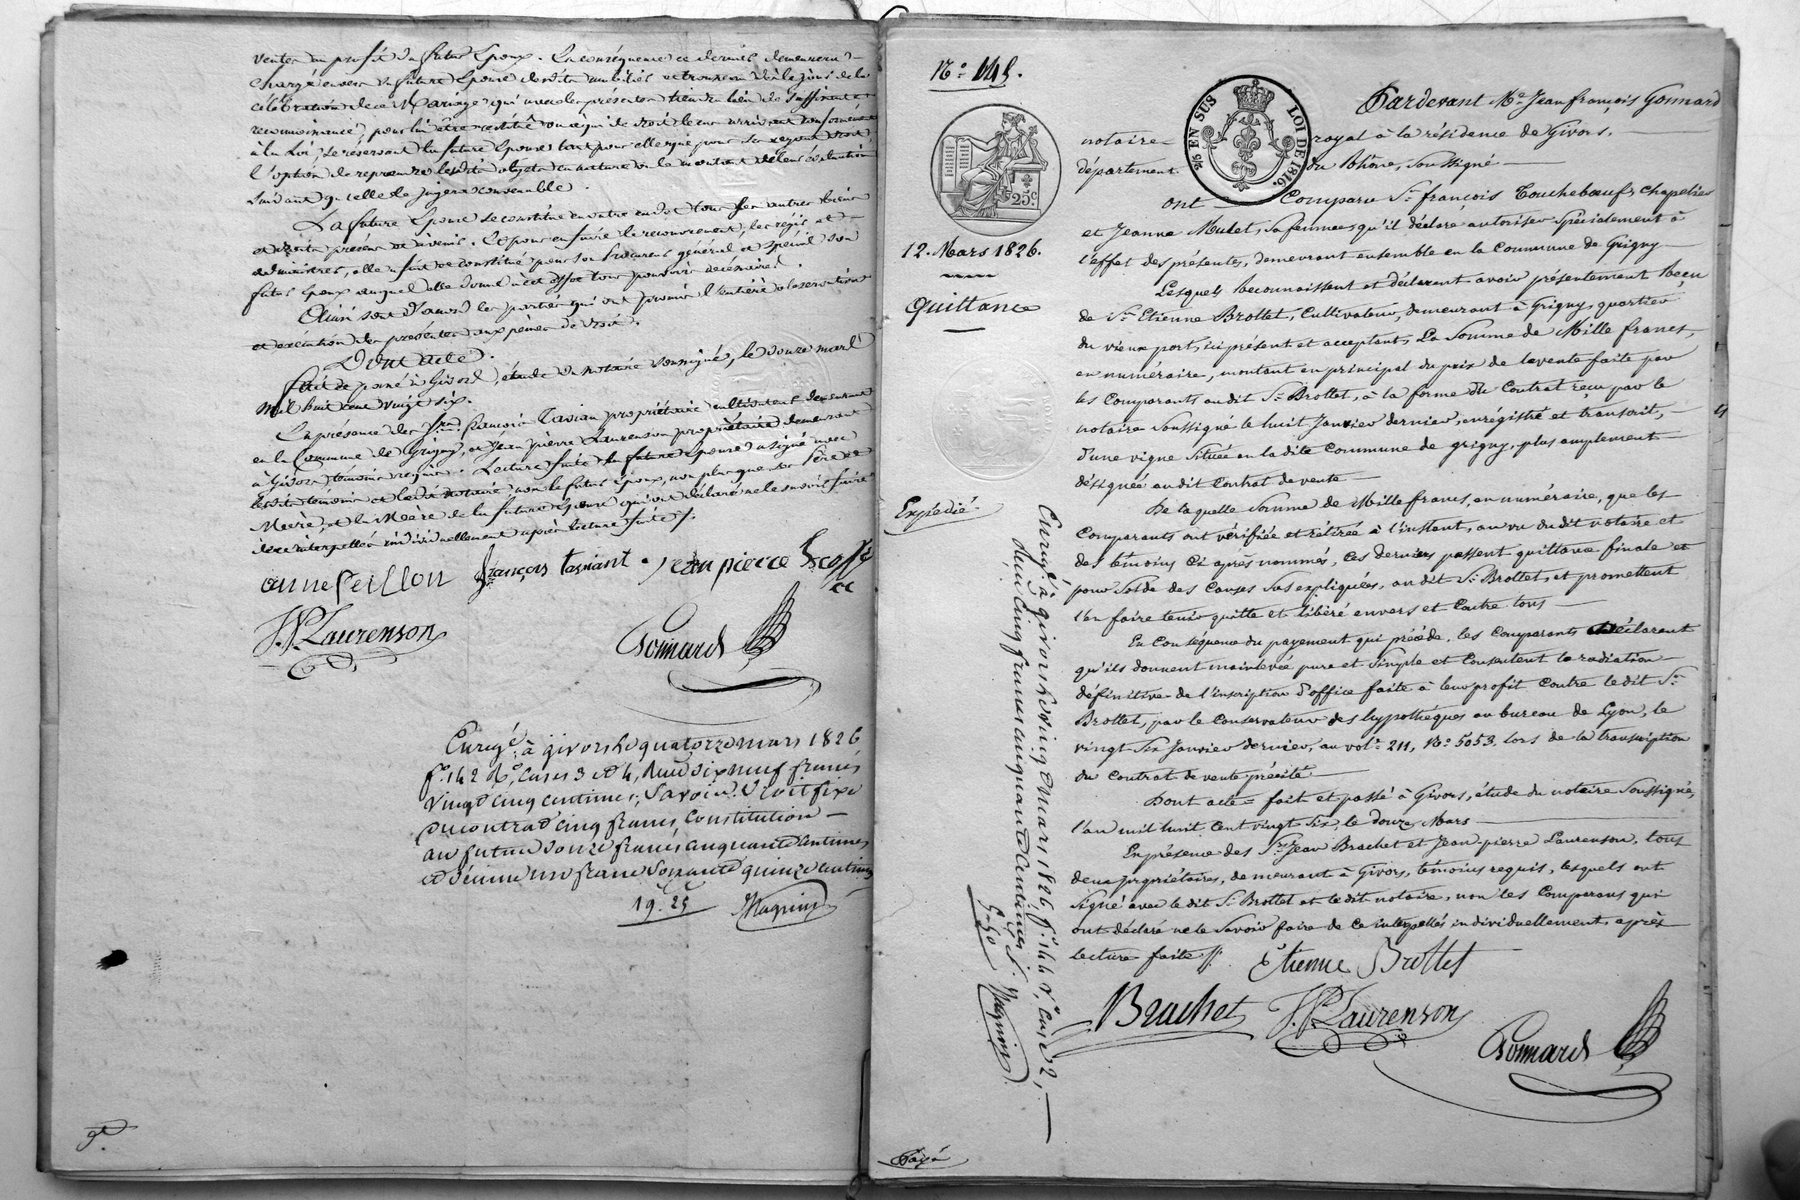 ventes au profit du futur Epoux. En conséquence ce dernier demeurera
chargé envers la future Epouse desdits mobiliers et trousseau dès le jour de la
célébration de ce Mariage, qui vaudra présentes tiendra lieu de suffisante
reconnaissance, pour lui être restitué ou à qui de droit le cas arrivant conformément
à la Loi, se réservant la future Epouse tant pour elle que pour les ayant droit,
l'option de reprendre lesdits objets en nature ou le montant de leur évaluation
suivant qu'elle le jugera convenable.
La future Epouse se constitue en outre en dot tous ses autres biens
et droits présens et avenir. Et pour en faire le recouvrement, les régir et
administrer, elle a fait et constitué pour son Procureur général et spécial son
futur Epoux auquel elle donne à cet effet tous pouvoirs nécessaires.
Ainsi sont d'accord les parties qui ont promis l'entière observation
et exécution des présentes aux peines de droit.
Dont acte.
Fait et passé à Givors, étude du notaire soussigné, le douze mars
mil huit cent vingt six.
En présence des Srs. François Tavian propriétaire cultivateur demeurant
en la Commune de Grigny, et Jean Pierre Laurenson propriétaire demeurant
à Givors témoins requis. Lecture faite la future épouse a signé avec
lesdits témoins et ledit notaire non le futur Epoux, non plus que ses Père et
Mère, et la Mère de la future épouse qui ont déclaré ne le savoir faire
de ce interpellés individuellement après lecture faite ∫.
anne Seillon françois taviant jean pierre
J.P. Laurenson Gonnard
Enregé. à givors le quatorze mars 1826
fo. 142 Ro. Cases 3 et 4, Reçu dix neuf francs
vingt cinq centimes; Savoir: Droit fixe
du contrat cinq francs, Constitution
au futur douze francs cinquante centimes
et décime un franc soixante quinze centimes
19. 25 Magnin
No. 145.
12. Mars 1826.
Quittance
Expédié.
25 EN SUS LOI DE 1816.
25c
Pardevant Me. Jean françois Gonnard
notaire royal à la résidence de Givors,
département du Rhône, soussigné.
ont Comparu Sr. françois Touchebœuf, chapelier
et Jeanne Mulet, sa femme qu'il déclare autoriser spécialement à
l'effet des présentes, demeurant ensemble en la Commune de Grigny
Lesquels reconnaissent et déclarent avoir présentement reçu
de Sr. Etienne Brottet, Cultivateur, demeurant à Grigny, quartier
du vieux port, ici présent et acceptant, La Somme de Mille francs,
en numéraire, montant en principal du prix de la vente faite par
les Comparants audit Sr. Brottet, à la forme du Contrat reçu par le
notaire Soussigné le huit Janvier dernier, enrégistré et transcrit,
d'une vigne Située en la dite Commune de grigny, plus amplement
désignée audit Contrat de vente
De laquelle Somme de Mille francs, en numéraire, que les
Comparants ont vérifiée et retirée à l'instant, au vu du dit notaire et
des témoins Ci après nommés, Ces derniers passent quittance finale et
pour Solde des Causes Sus expliquées, au dit Sr. Brottet, et promettent
l'en faire tenir quitte et libéré envers et Contre tous
En Conséquence du payement qui précède, les Comparants déclarent
qu'ils donnent mainlevée pure et Simple et Consentent la radiation
définitive de l'inscription d'office faite à leur profit Contre ledit Sr.
Brottet, par le Conservateur des hypothèques au bureau de Lyon, le
vingt Six Janvier dernier, au vol. 211, No. 5053, lors de la transcription
du Contrat de vente précité
Dont acte fait et passé à Givors, étude du notaire Soussigné,
l'an mil huit Cent vingt Six, le douze Mars
En présence des Srs. Jean Brachet et Jean-pierre Laurenson, tous
deux propriétaires, demeurant à Givors, témoins requis, lesquels ont
Signé avec le dit Sr. Brottet et ledit notaire, non les Comparans qui
ont déclaré ne le Savoir faire de Ce interpellés individuellement, après
lecture faite ∫.
Etienne Brottet
Brachet J.P. Laurenson Gonnard
Enregé. à givors le vingt mars 1826, fo. 144 Vo. Case 2,
Reçu cinq francs cinquante Centimes
5. 50 Magnin
Payé